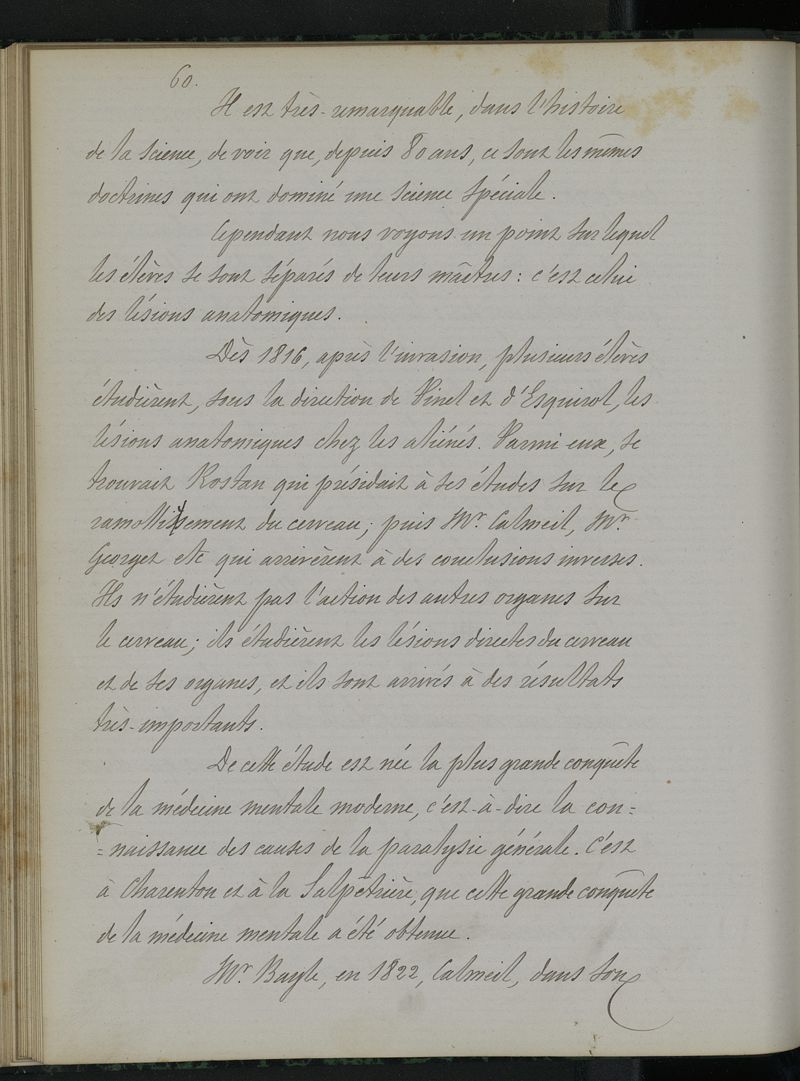 60.
Il est très-remarquable, dans l'histoire
de la science, de voir que, depuis 80 ans, ce sont les mêmes
doctrines qui ont dominé une science spéciale.
Cependant nous voyons un point sur lequel
les élèves se sont séparés de leurs maîtres : c'est celui
des lésions anatomiques.
Dès 1816, après l'invasion, plusieurs élèves
étudièrent, sous la direction de Pinel et d'Esquirol, les
lésions anatomiques chez les aliénés. Parmi eux, se
trouvait Rostan qui présidait à ses études sur le
ramollissement du cerveau; puis Mr. Calmeil, Mr.
Georget etc qui arrivèrent à des conclusions inverses.
Ils n'étudièrent pas l'action des autres organes sur
le cerveau; ils étudièrent les lésions directes du cerveau
et de ses organes, et ils sont arrivés à des résultats
très-importants.
De cette étude est née la plus grande conquête
de la médecine mentale moderne, c'est-à-dire la con=
=naissance des causes de la paralysie générale. C'est
à Charenton et à la Salpêtrière, que cette grande conquête
de la médecine mentale a été obtenue.
Mr. Bayle, en 1822, Calmeil, dans son